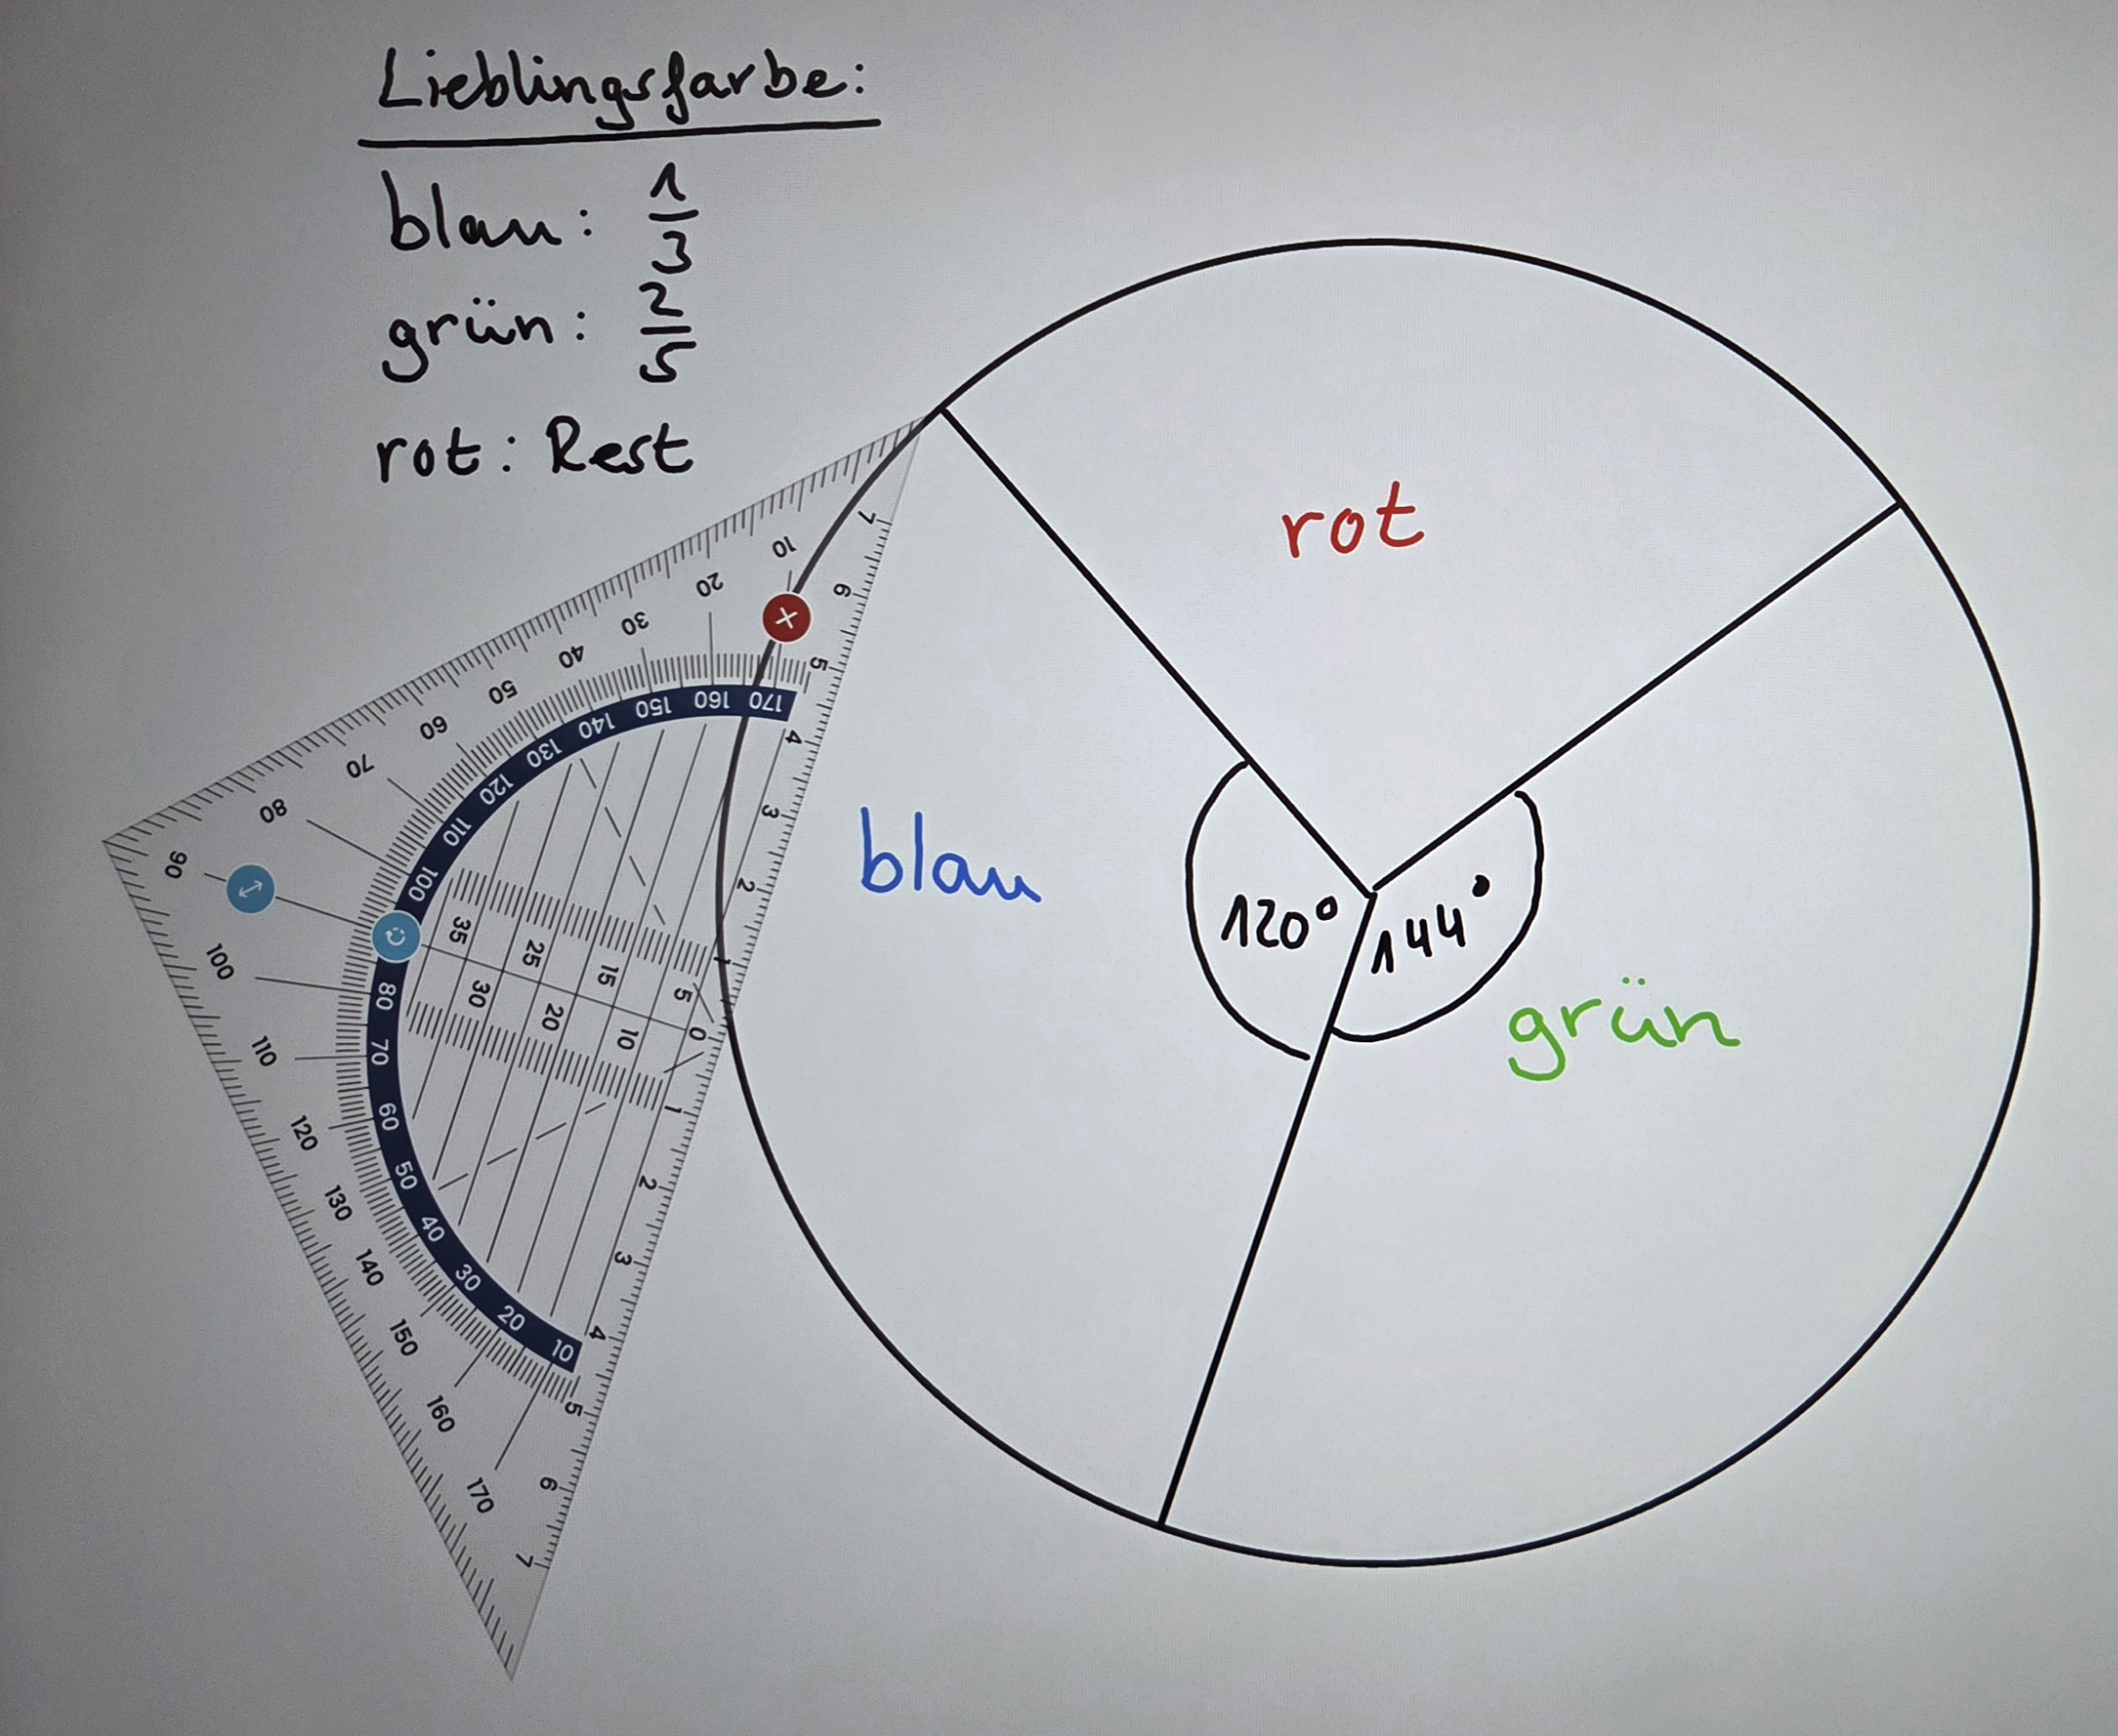 Lieblingsfarbe:
blau: 1/3
grün: 2/5
rot: Rest
rot
blau
120°
144°
grün
7
6
5
4
3
2
1
0
1
2
3
4
5
6
7
10
20
30
40
50
60
70
80
90
100
110
120
130
140
150
160
170
170
160
150
140
130
120
110
100
80
70
60
50
40
30
20
10
35
25
15
5
30
20
10